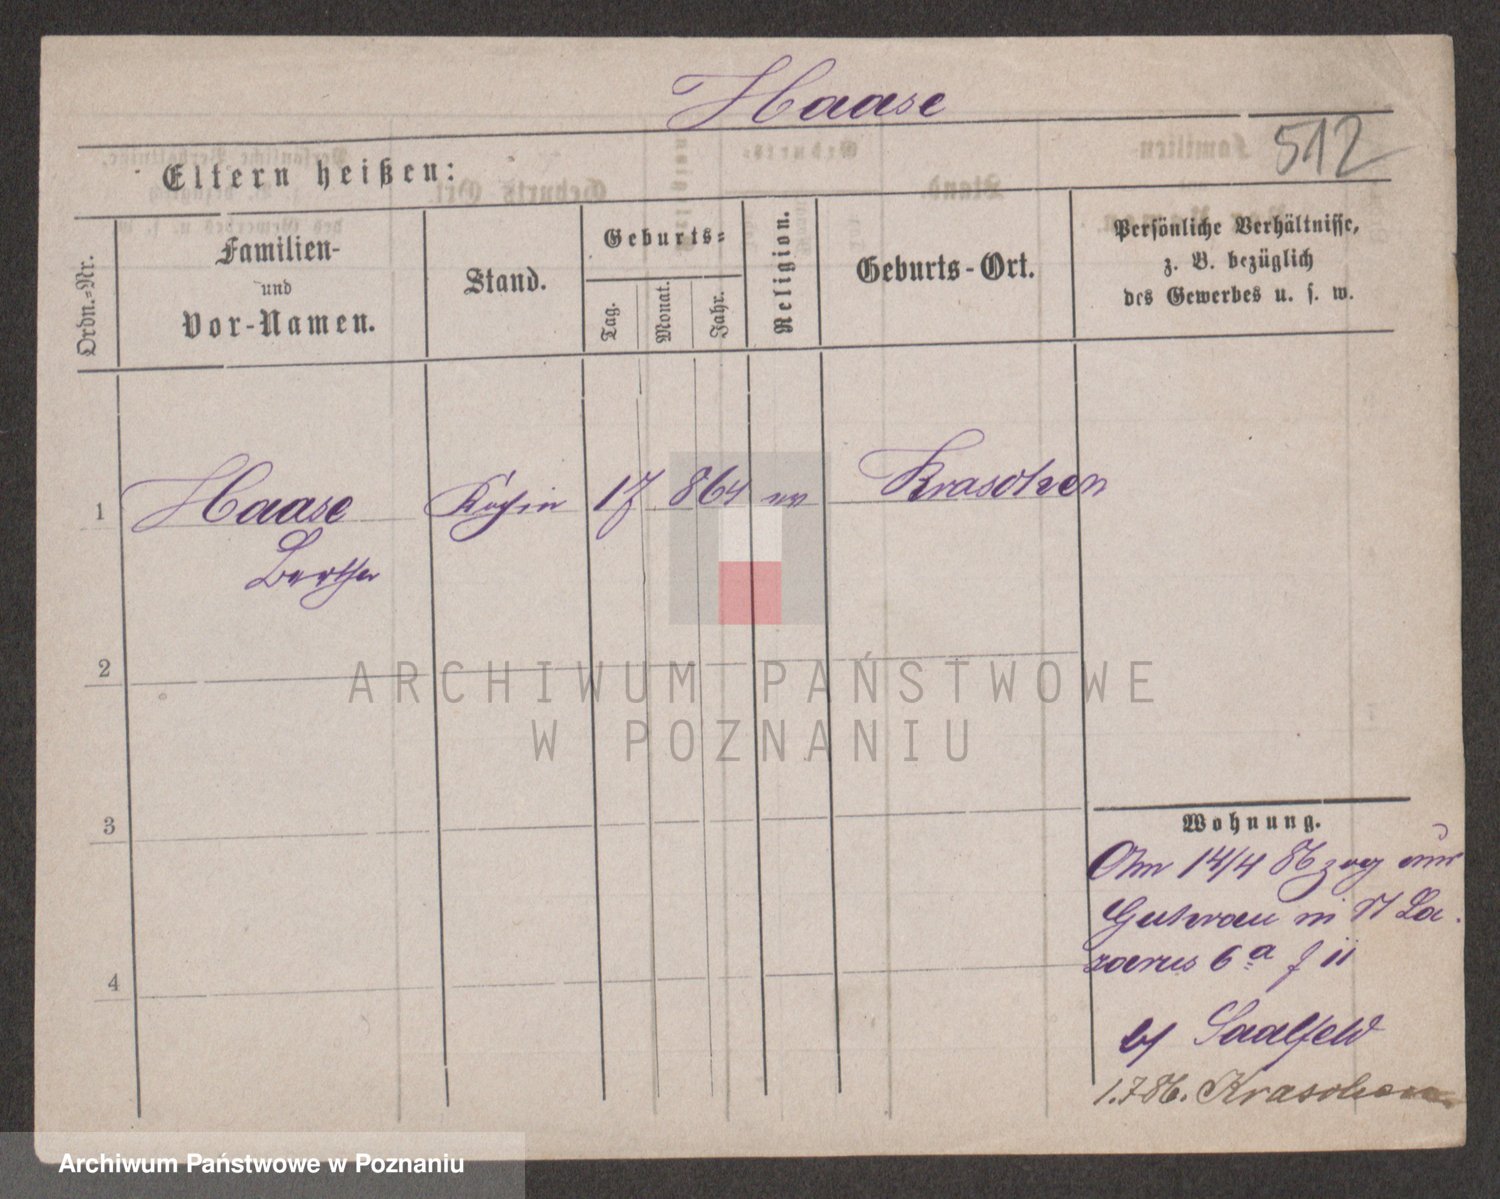 Haase
512
Eltern heißen:
Ordn.=Nr.
Familien-
und
Vor-Namen.
Stand.
Geburts=
Tag.
Monat.
Jahr.
Religion.
Geburts-Ort.
Persönliche Verhältnisse,
z. B. bezüglich
des Gewerbes u. s. w.
1 Haase Köchin 17 864 ev Kraschen
Bertha
2
3
4
Wohnung.
Am 14/4 86 zog aus
Guhrau in St La
zarus 6a f II
b/ Saalfeld
1.7 86. Kraschen
ARCHIWUM PAŃSTWOWE
W POZNANIU
Archiwum Państwowe w Poznaniu